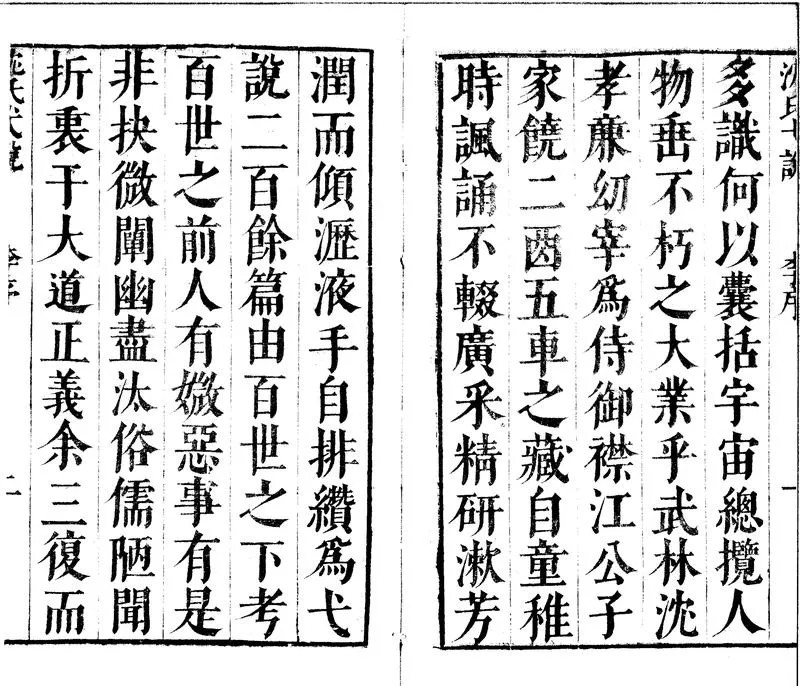 沈氏弋說 李序 一
多識何以囊括宇宙總攬人
物垂不朽之大業乎武林沈
孝廉幼宰爲侍御襟江公子
家饒二酉五車之藏自童稚
時諷誦不輟廣采精研漱芳
潤而傾瀝液手自排纘爲弋
說二百餘篇由百世之下考
百世之前人有媺惡事有是
非抉微闡幽盡汰俗儒陋聞
折衷于大道正義余三復而
沈氏弋說 李序 二